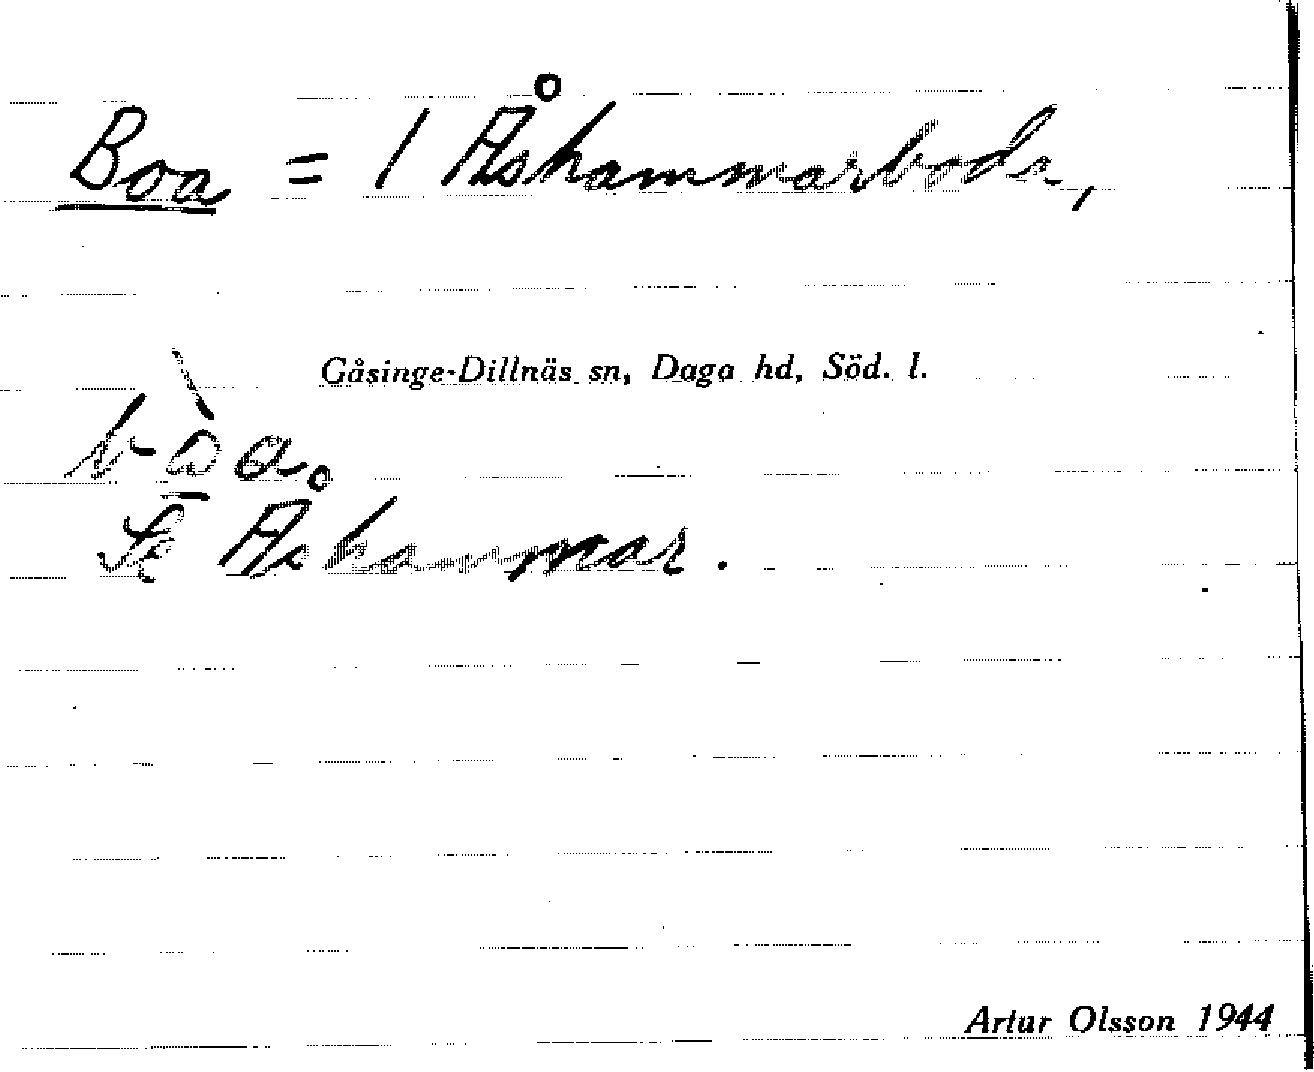 Boa = / Åshammarboda,
Gåsinge-Dillnäs sn, Daga hd, Söd. l.
bòa
Se Åshammar.
Artur Olsson 1944